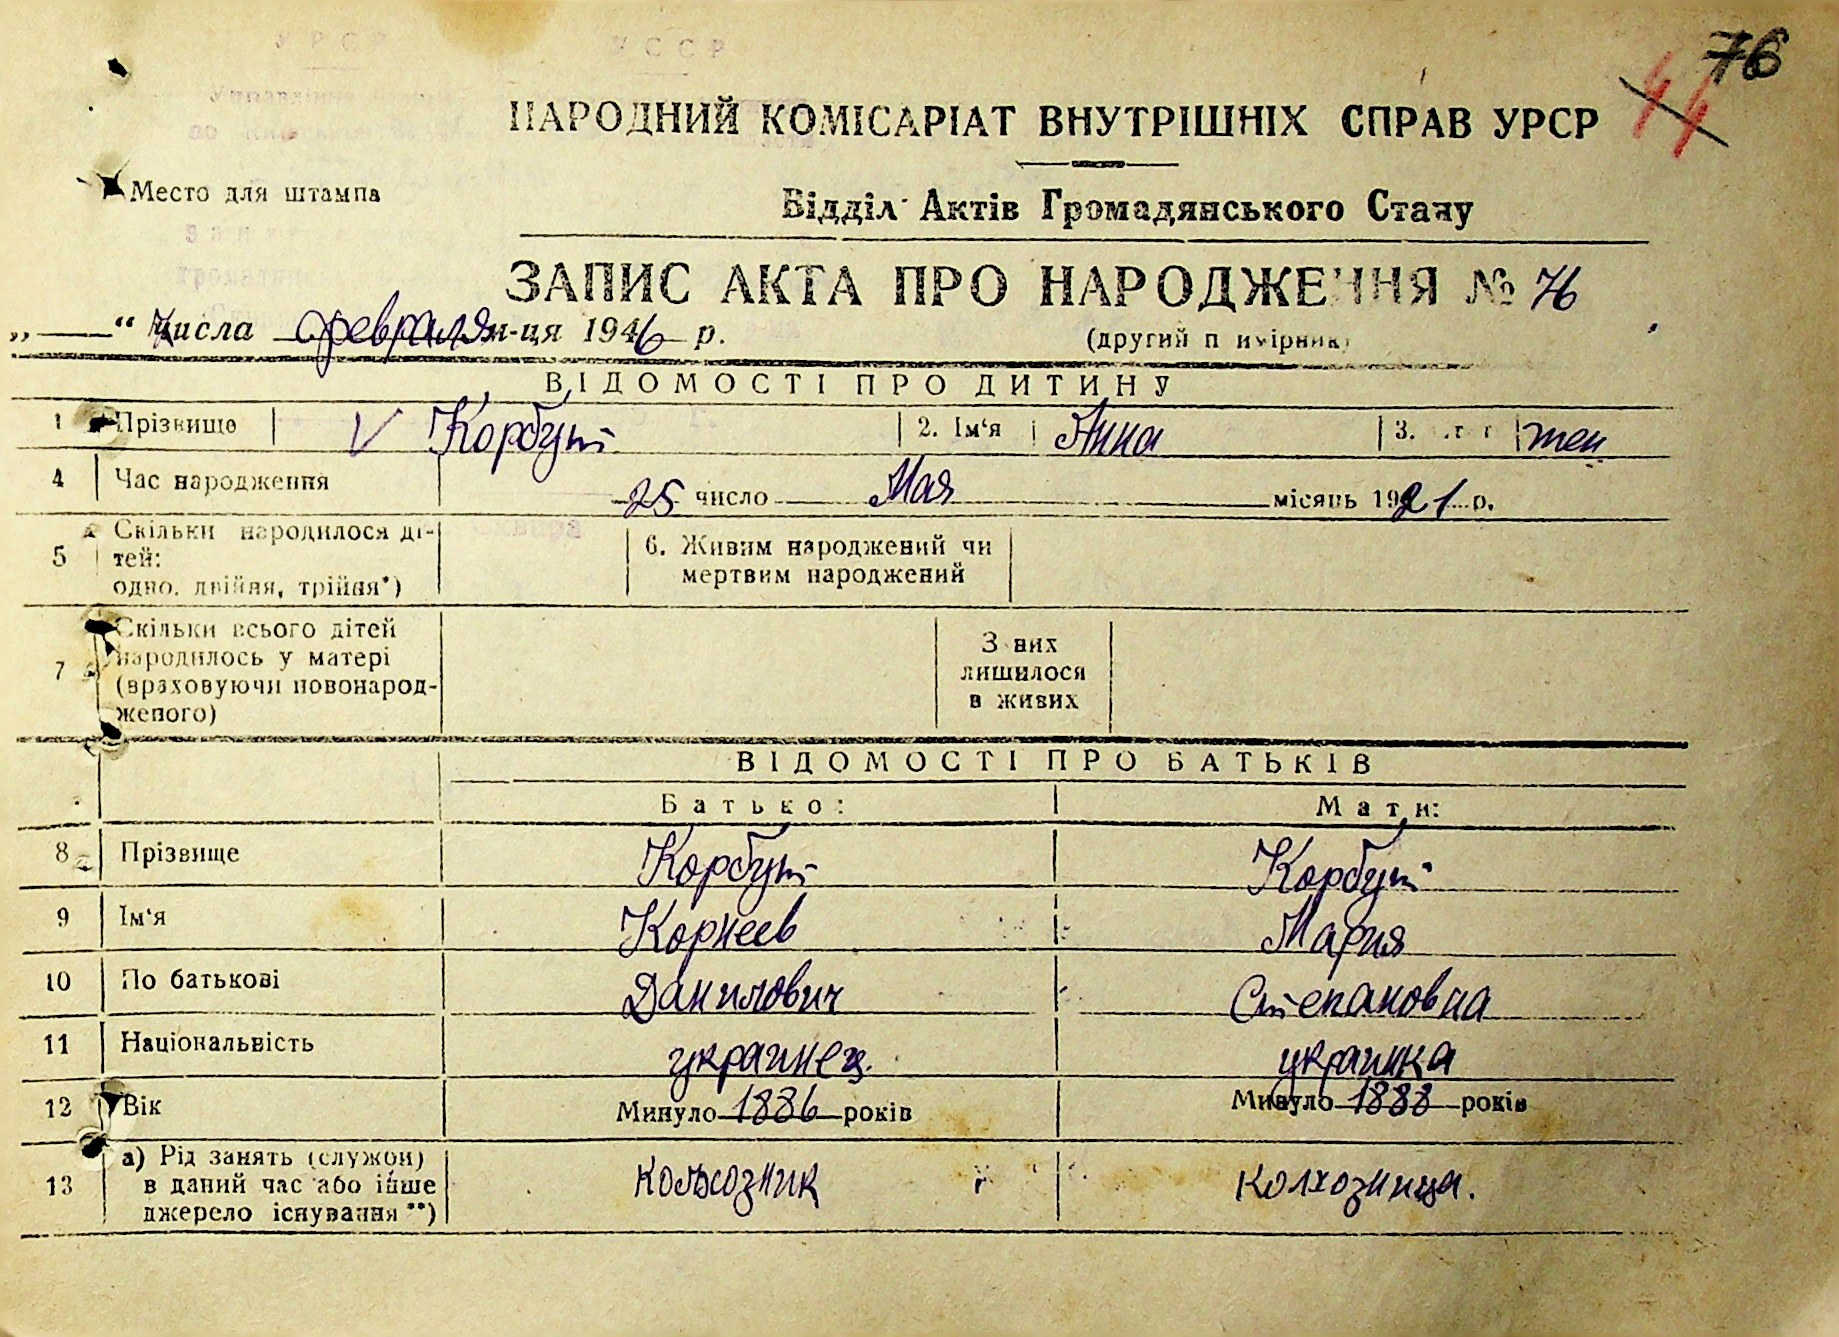 76
44
НАРОДНИЙ КОМІСАРІАТ ВНУТРІШНІХ СПРАВ УРСР
Место для штампа
Відділ Актів Громадянського Стану
ЗАПИС АКТА ПРО НАРОДЖЕННЯ № 76
„—“ числа февраля м-ця 1946 р.
(другий примірник)
ВІДОМОСТІ ПРО ДИТИНУ
1 Прізвище V Корбут 2. Ім‘я Анна 3. жен
4 Час народження 25 число Мая місяць 1921 р.
5 Скільки народилося ді-
тей:
одно, двійня, трійня*)
6. Живим народжений чи
мертвим народжений
7 Скільки всього дітей
народилось у матері
(враховуючи новонарод-
женого)
З них
лишилося
в живих
ВІДОМОСТІ ПРО БАТЬКІВ
Батько: Мати:
8 Прізвище Корбут Корбут
9 Ім‘я Корнеев Мария
10 По батькові Данилович Степановна
11 Національність украинец. украинка
12 Вік Минуло 1886 років Минуло 1888 років
13 а) Рід занять (служби)
в даний час або інше
джерело існування **)
колхозник колхозница.